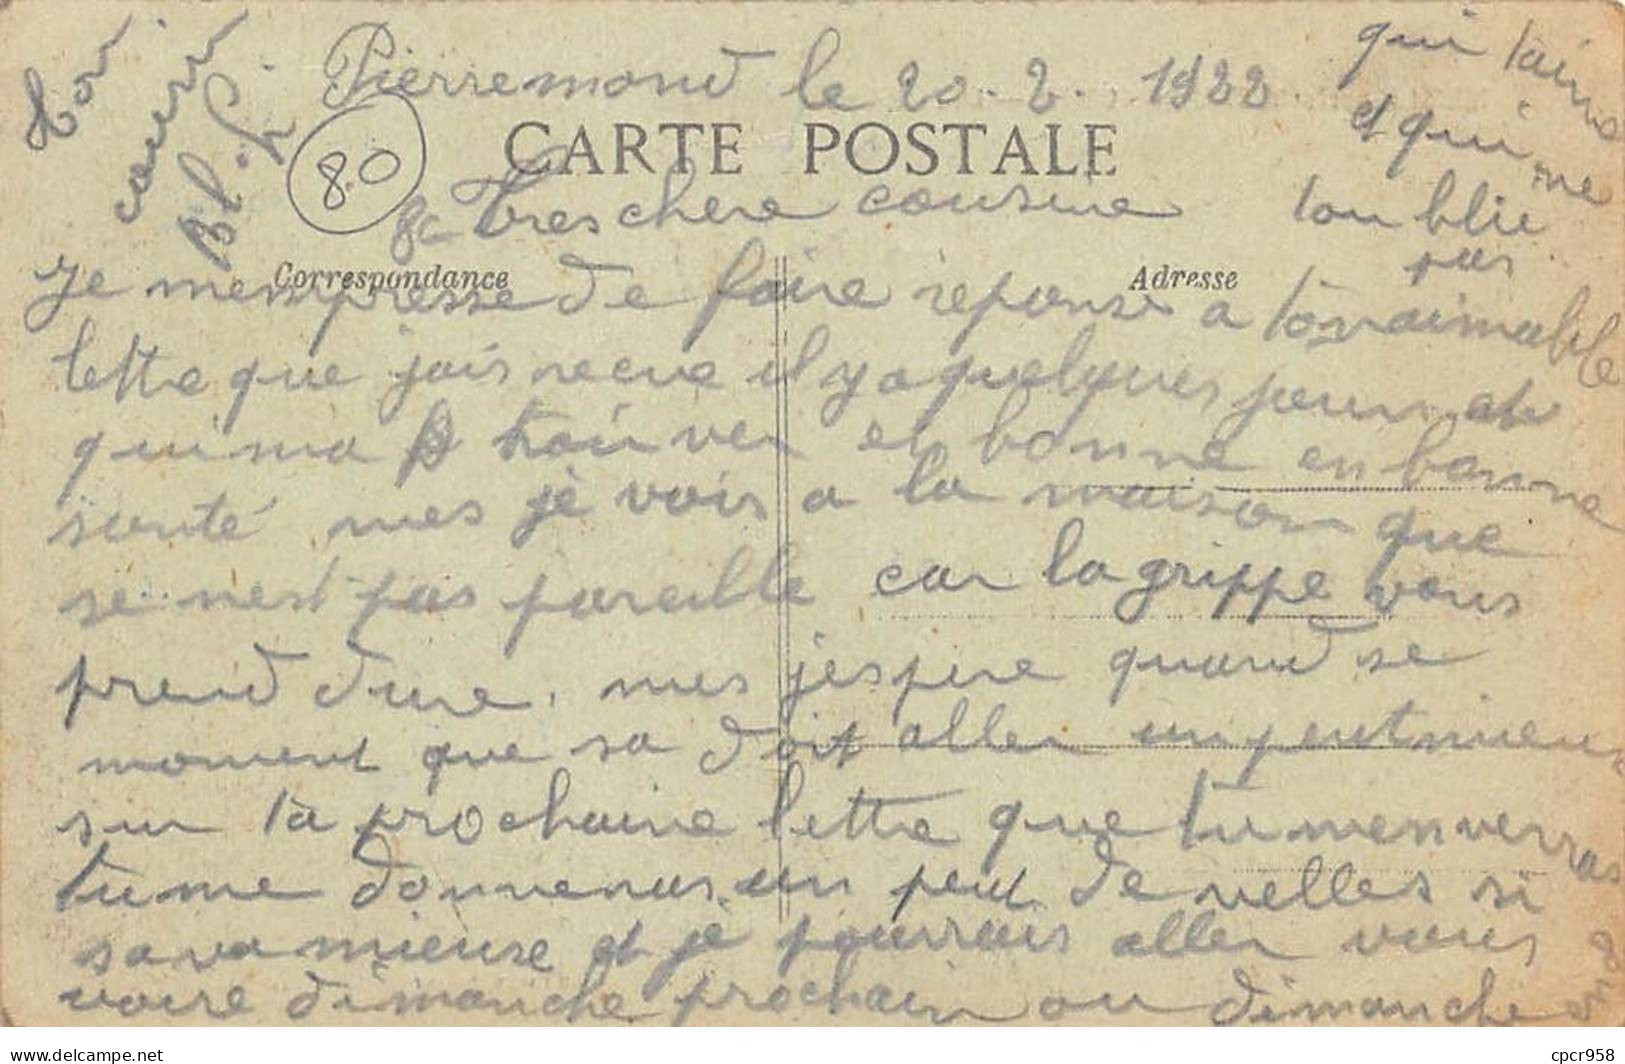 Pierremond le 20.2.1922
CARTE POSTALE
80
Tres chere cousine
Correspondance
Adresse
Je mempresse de faire reponse a ton aimable
lettre que jais recue il y a quelques jours et
qui ma trouver en bonne en bonne
santé mes je vois a la maison que
se nest pas pareille car la grippe vous
prend dure, mes jespere quand se
moment que sa doit aller un peut mieux
sur ta prochaine lettre que tu menverras
tu me donneras un peut de nelles si
sa va mieuse et je pourrais aller vous
voire dimanche prochain ou dimanche en 8
Ton
cousin
qui taime
et qui ne
toublie
pas
delcampe.net
cpcr958